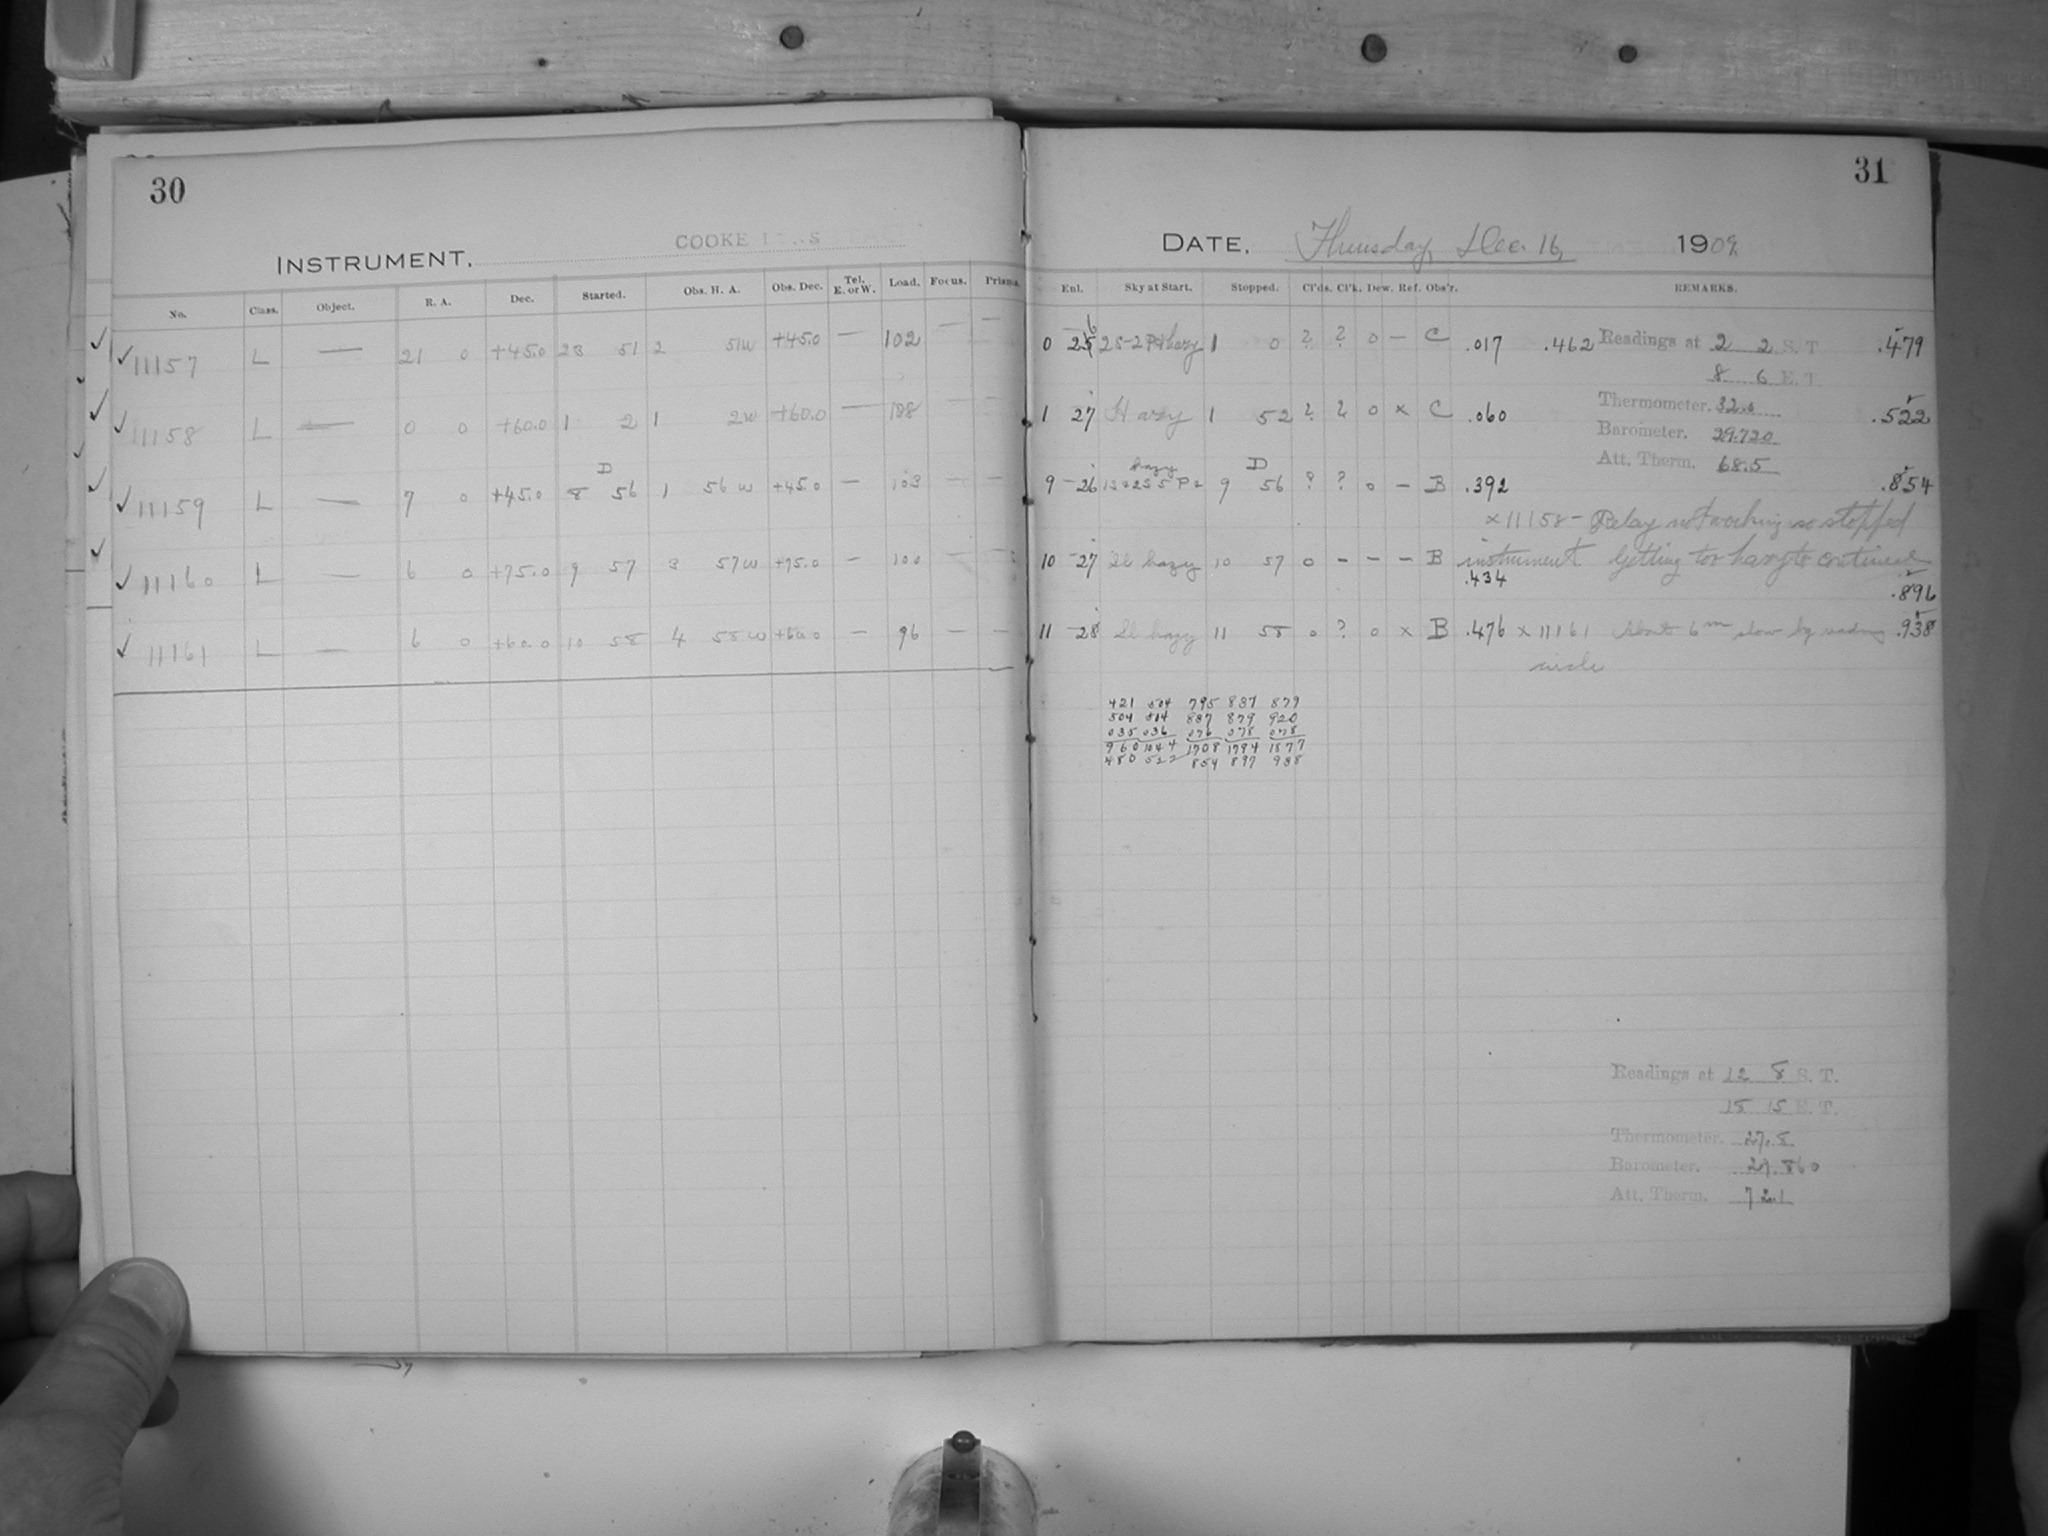 30
INSTRUMENT. COOKE
No. Class. Object. R. A. Dec. Started. Obs. H. A. Obs. Dec. Tel. E. or W. Load. Focus. Prisms.
✓ 11157 L — 21 0 +45.0 23 51 2 51W +45.0 — 102 — —
✓ 11158 L — 0 0 +60.0 1 2 1 2W +60.0 — 188 — —
D
✓ 11159 L — 7 0 +45.0 8 56 1 56 W +45.0 — 103 — —
✓ 11160 L — 6 0 +75.0 9 57 3 57W +75.0 — 100 — —
✓ 11161 L — 6 0 +60.0 10 58 4 58 W +60.0 — 96 — —
31
DATE. Thursday, Dec. 16, 1909
Enl. Sky at Start. Stopped. Cl'ds. Cl'k. Dew. Ref. Obs'r. REMARKS.
0 hazy 1 0 ? ? 0 — C .017 .462 Readings at 2 2 S. T .479
8 6 E. T.
1 27 Hazy 1 52 ? ? 0 × C .060 Thermometer. 32.0 .522
Barometer. 29.720
Att. Therm. 68.5
hazy D
9 26 9 56 ? ? 0 — B .392 .854
× 11158 — Relay not working so stopped
10 27 Sl hazy 10 57 0 - - - B instrument. Getting too hazy to continue
.434 .896
11 28 Sl hazy 11 58 0 ? 0 × B .476 × 11161 About 6m slow by reading .938
circle
421 504 795 837 879
504 504 837 879 920
035 036 076 078 078
960 1044 1708 1794 1877
480 522 854 897 938
Readings at 12 8 S. T.
15 15 E. T.
Thermometer. 27.5
Barometer. 29.860
Att. Therm. 72.1